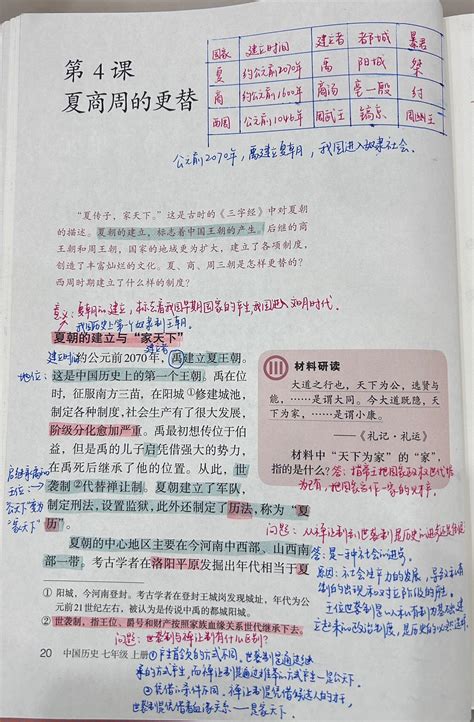 第4课
夏商周的更替
国家 建立时间 建立者 都城 暴君
夏 约公元前2070年 禹 阳城 桀
商 约公元前1600年 商汤 亳—殷 纣
西周 公元前1046年 周武王 镐京 周幽王
公元前2070年，禹建立夏朝，我国进入奴隶社会。
“夏传子，家天下。”这是古时的《三字经》中对夏朝
的描述。夏朝的建立，标志着中国王朝的产生。后继的商
王朝和周王朝，国家的地域更为扩大，建立了各项制度，
创造了丰富灿烂的文化。夏、商、周三朝是怎样更替的？
西周时期建立了什么样的制度？
意义：夏朝的建立，标志着我国早期国家的产生，我国进入
我国历史上第一个奴隶制王朝。
夏朝的建立与“家天下”
建立时间
建立者
约公元前2070年，禹建立夏王朝。
地位：
这是中国历史上的第一个王朝。禹在位
时，征服南方三苗，在阳城①修建城池，
制定各种制度，社会生产有了很大发展，
阶级分化愈加严重。禹最初想传位于伯
益，但是禹的儿子启凭借强大的势力，
在禹死后继承了他的位置。从此，世
袭制②代替禅让制。夏朝建立了军队，
制定刑法，设置监狱，此外还制定了历法，称为“夏
历”。
启继承禹的
王位：
“家天下”
夏朝的中心地区主要在今河南中西部、山西南
部一带，考古学者在洛阳平原发掘出年代相当于夏
材料研读
大道之行也，天下为公，选贤与
能，……是谓大同。今大道既隐，天
下为家，……是谓小康。
——《礼记·礼运》
材料中“天下为家”的“家”，
指的是什么？
答：指帝王把国家政权
为己有，把国家当作一家的
问题：从禅让制到世袭制是历史的进步还是
答：是一种社会的进步。
原因：社会生产力的发展，导致私有
制的出现和对立阶级的
王位世袭制是以私有制为基础建
立起来的政治制度，是历史的必然
① 阳城，今河南登封。考古学者在登封王城岗发现城址，年代为公
元前21世纪左右，被认为是传说中禹的都城阳城。
② 世袭制，指王位、爵号和财产按照家族血缘关系世代继承下去。
问题：世袭制与禅让制有什么区别？
20 中国历史 七年级 上册
①产生首领的方式不同，世袭制是通过继
承的方式产生，而禅让制是通过推举的方式产生—是公天下。
②凭借的条件不同，禅让制是凭借候选人的才干，
世袭制是凭借着血缘关系—是家天下。